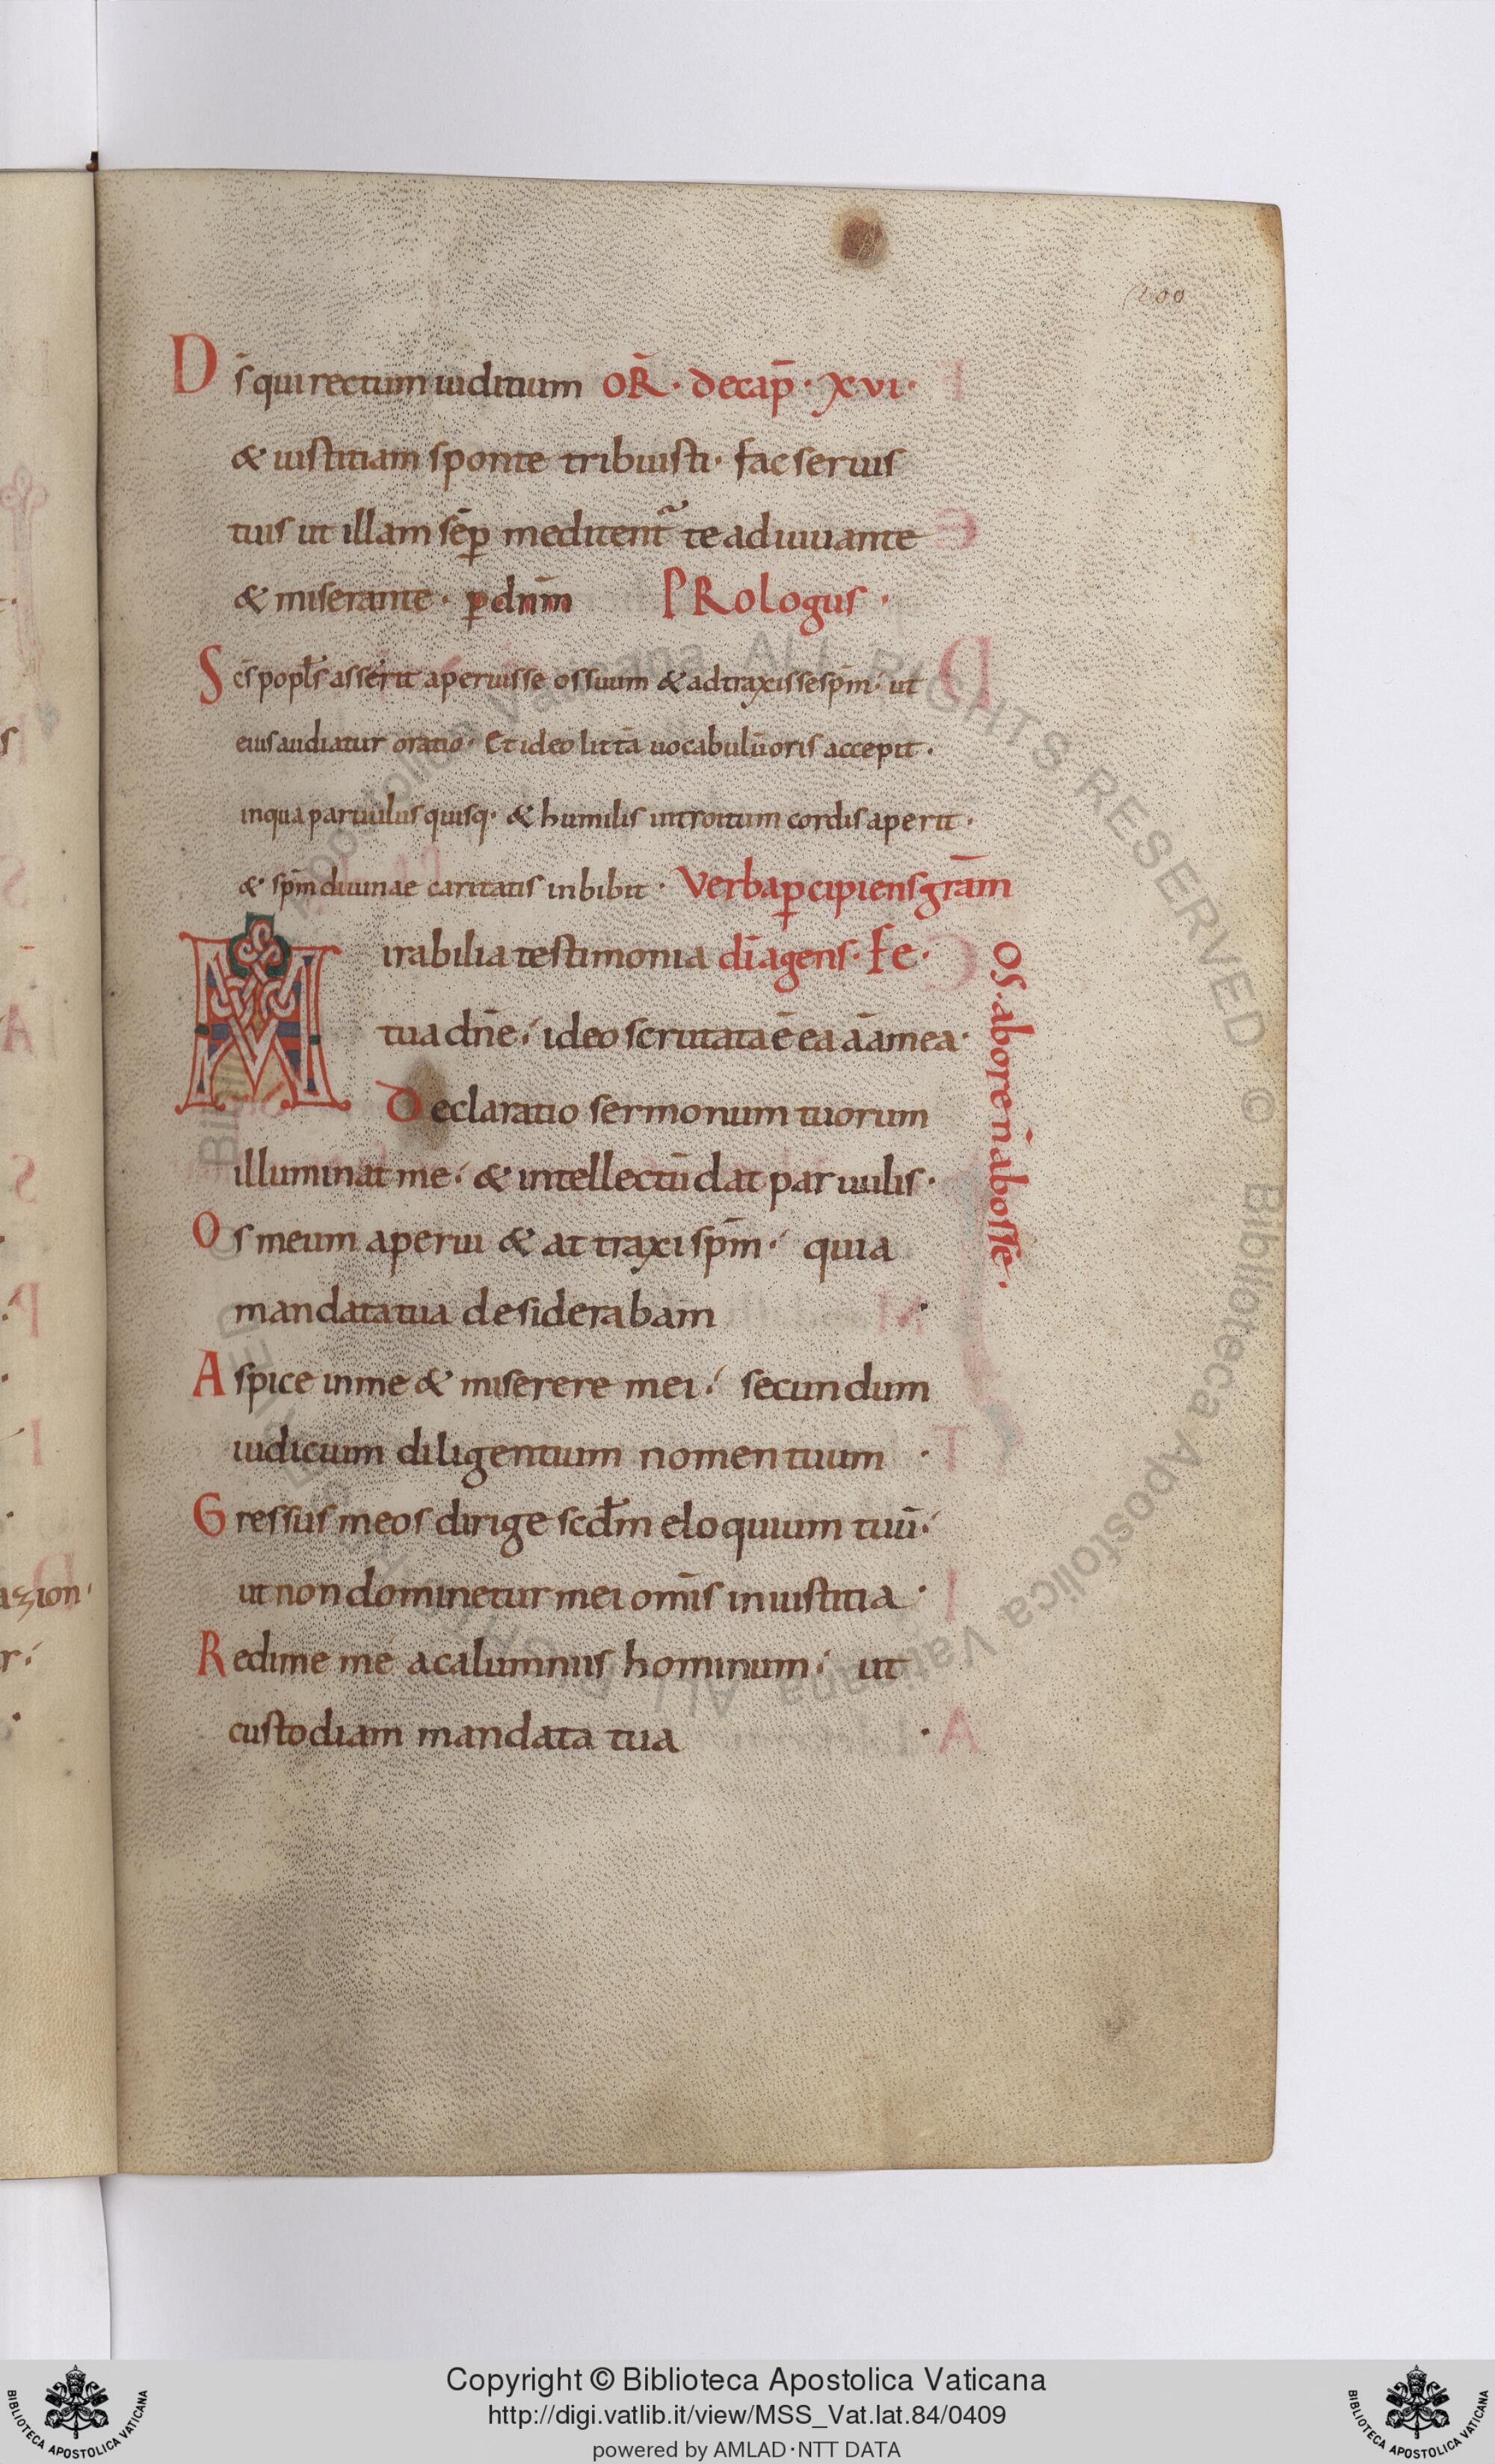 200
D s̄ qui rectum iuditium OR̄ · de cap̄ · xvi ·
& iustitiam sponte tribuisti · fac seruis
tuis ut illam sēp meditent̄ te adiuuante
& miserante · ꝑ dn̄m PRologus ·
S c̄s popl̄s asserit aperuisse os suum & adtraxisse sp̄m · ut
eius audiatur oratio · Et ideo littā uocabulū oris accepit ·
in qua paruulus quisq· & humilis introitum cordis aperit ·
& sp̄m diuinae caritatis inbibit · Verba ꝑcipiens gr̄am
M irabilia testimonia dī agens · fe ·
tua dn̄e ; ideo scrutata ē ea āa mea ·
Declaratio sermonum tuorum
illuminat me ; & intellectū dat paruulis ·
O s meum aperui & attraxi sp̄m ; quia
mandata tua desiderabam ·
A spice in me & miserere mei ; secundum
iudicium diligentium nomen tuum ·
G ressus meos dirige scd̄m eloquium tuū ;
ut non dominetur mei om̄is iniustitia ·
R edime me a calumniis hominum ; ut
custodiam mandata tua ·
os · ab ore n̄ ab osse ·
Copyright © Biblioteca Apostolica Vaticana
http://digi.vatlib.it/view/MSS_Vat.lat.84/0409
powered by AMLAD·NTT DATA
BIBLIOTECA APOSTOLICA VATICANA
BIBLIOTECA APOSTOLICA VATICANA
© Biblioteca Apostolica Vaticana ALL RIGHTS RESERVED